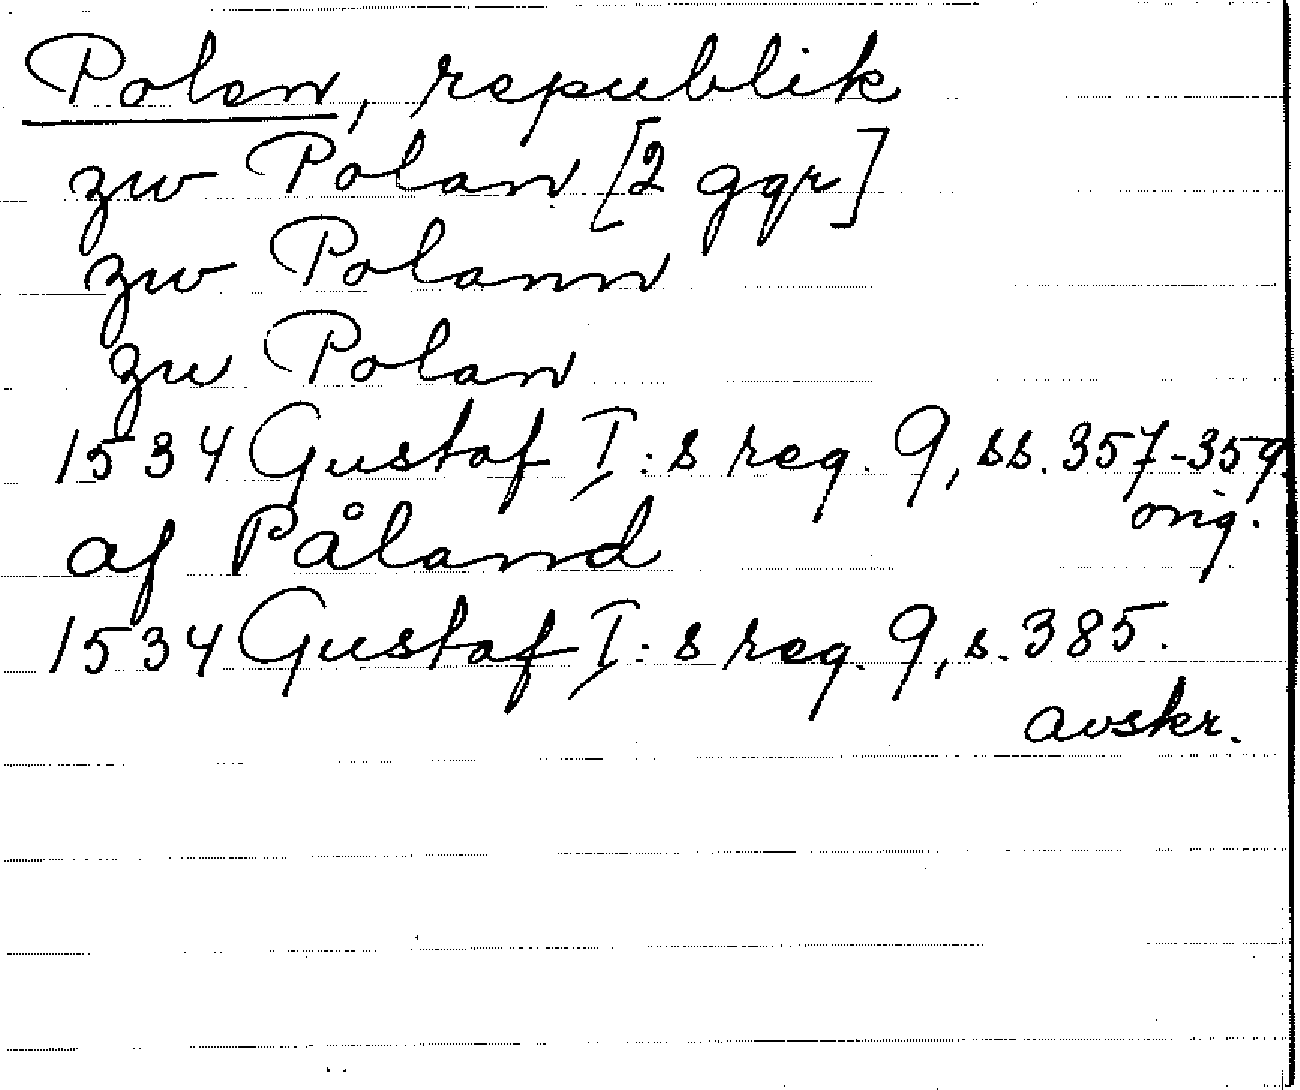 Polen, republik
zw Polan [2 ggr]
zw Polann
zu Polan
1534 Gustaf I:s reg. 9, ss. 357-359.
orig.
af Påland
1534 Gustaf I:s reg. 9, s. 385.
avskr.